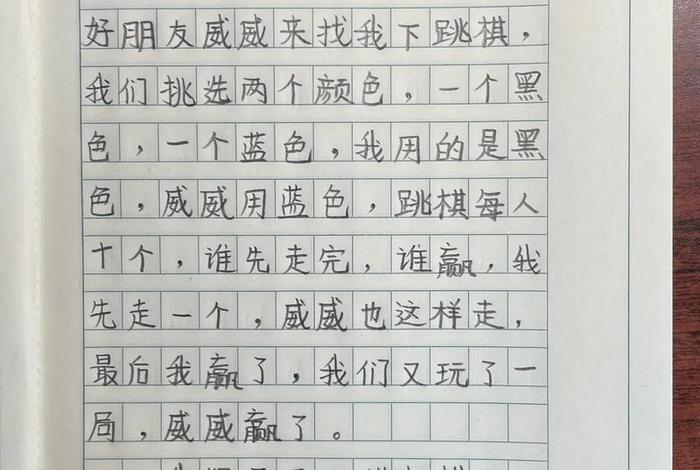 好朋友威威来找我下跳棋，
我们挑选两个颜色，一个黑
色，一个蓝色，我用的是黑
色，威威用蓝色，跳棋每人
十个，谁先走完，谁赢，我
先走一个，威威也这样走，
最后我赢了，我们又玩了一
局，威威赢了。